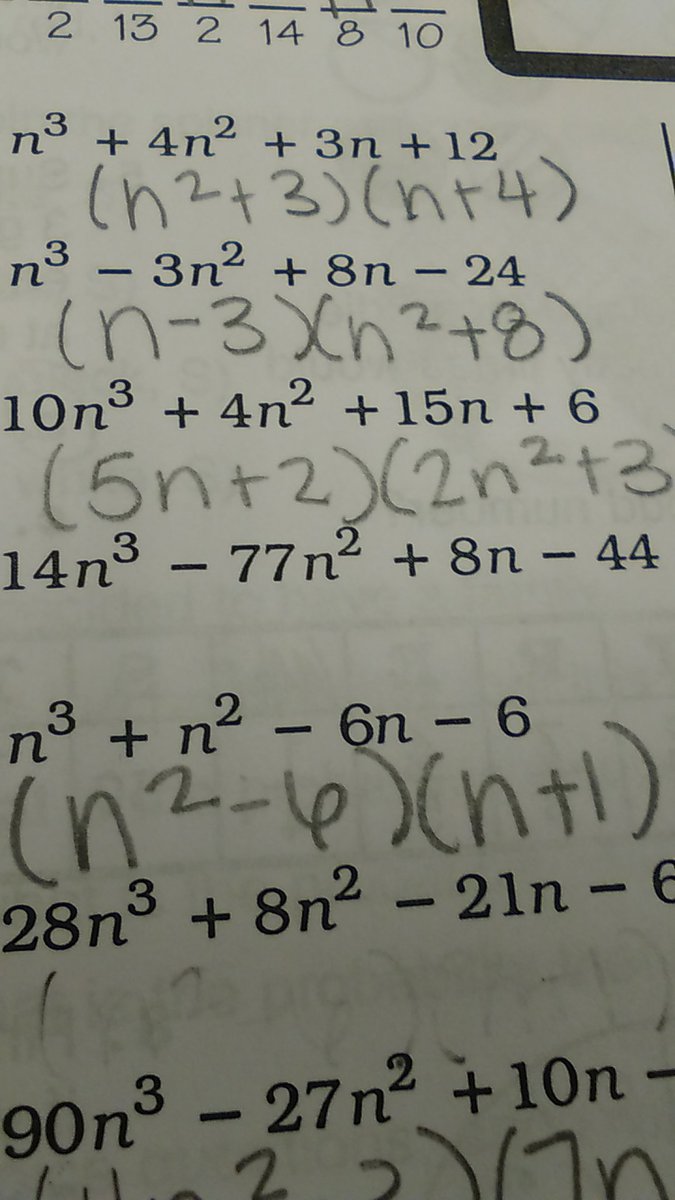 2 13 2 14 8 10
n³ + 4n² + 3n + 12
(n²+3)(n+4)
n³ − 3n² + 8n − 24
(n-3)(n²+8)
10n³ + 4n² + 15n + 6
(5n+2)(2n²+3
14n³ − 77n² + 8n − 44
n³ + n² − 6n − 6
(n²-6)(n+1)
28n³ + 8n² − 21n − 6
(
90n³ − 27n² + 10n −
)(7n